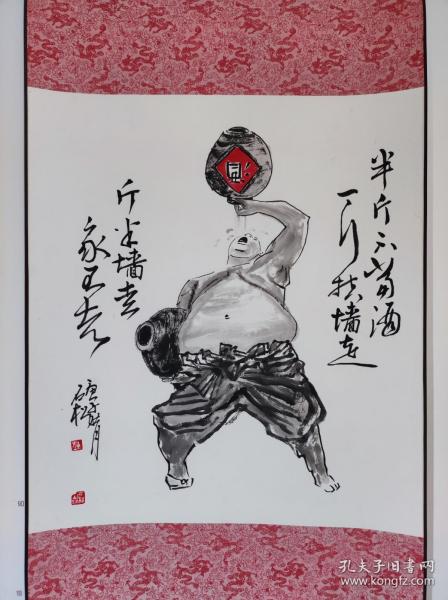 半斤不當酒
一斤扶墙走
斤半墙走
我不走
90
孔夫子旧书网
www.kongfz.com